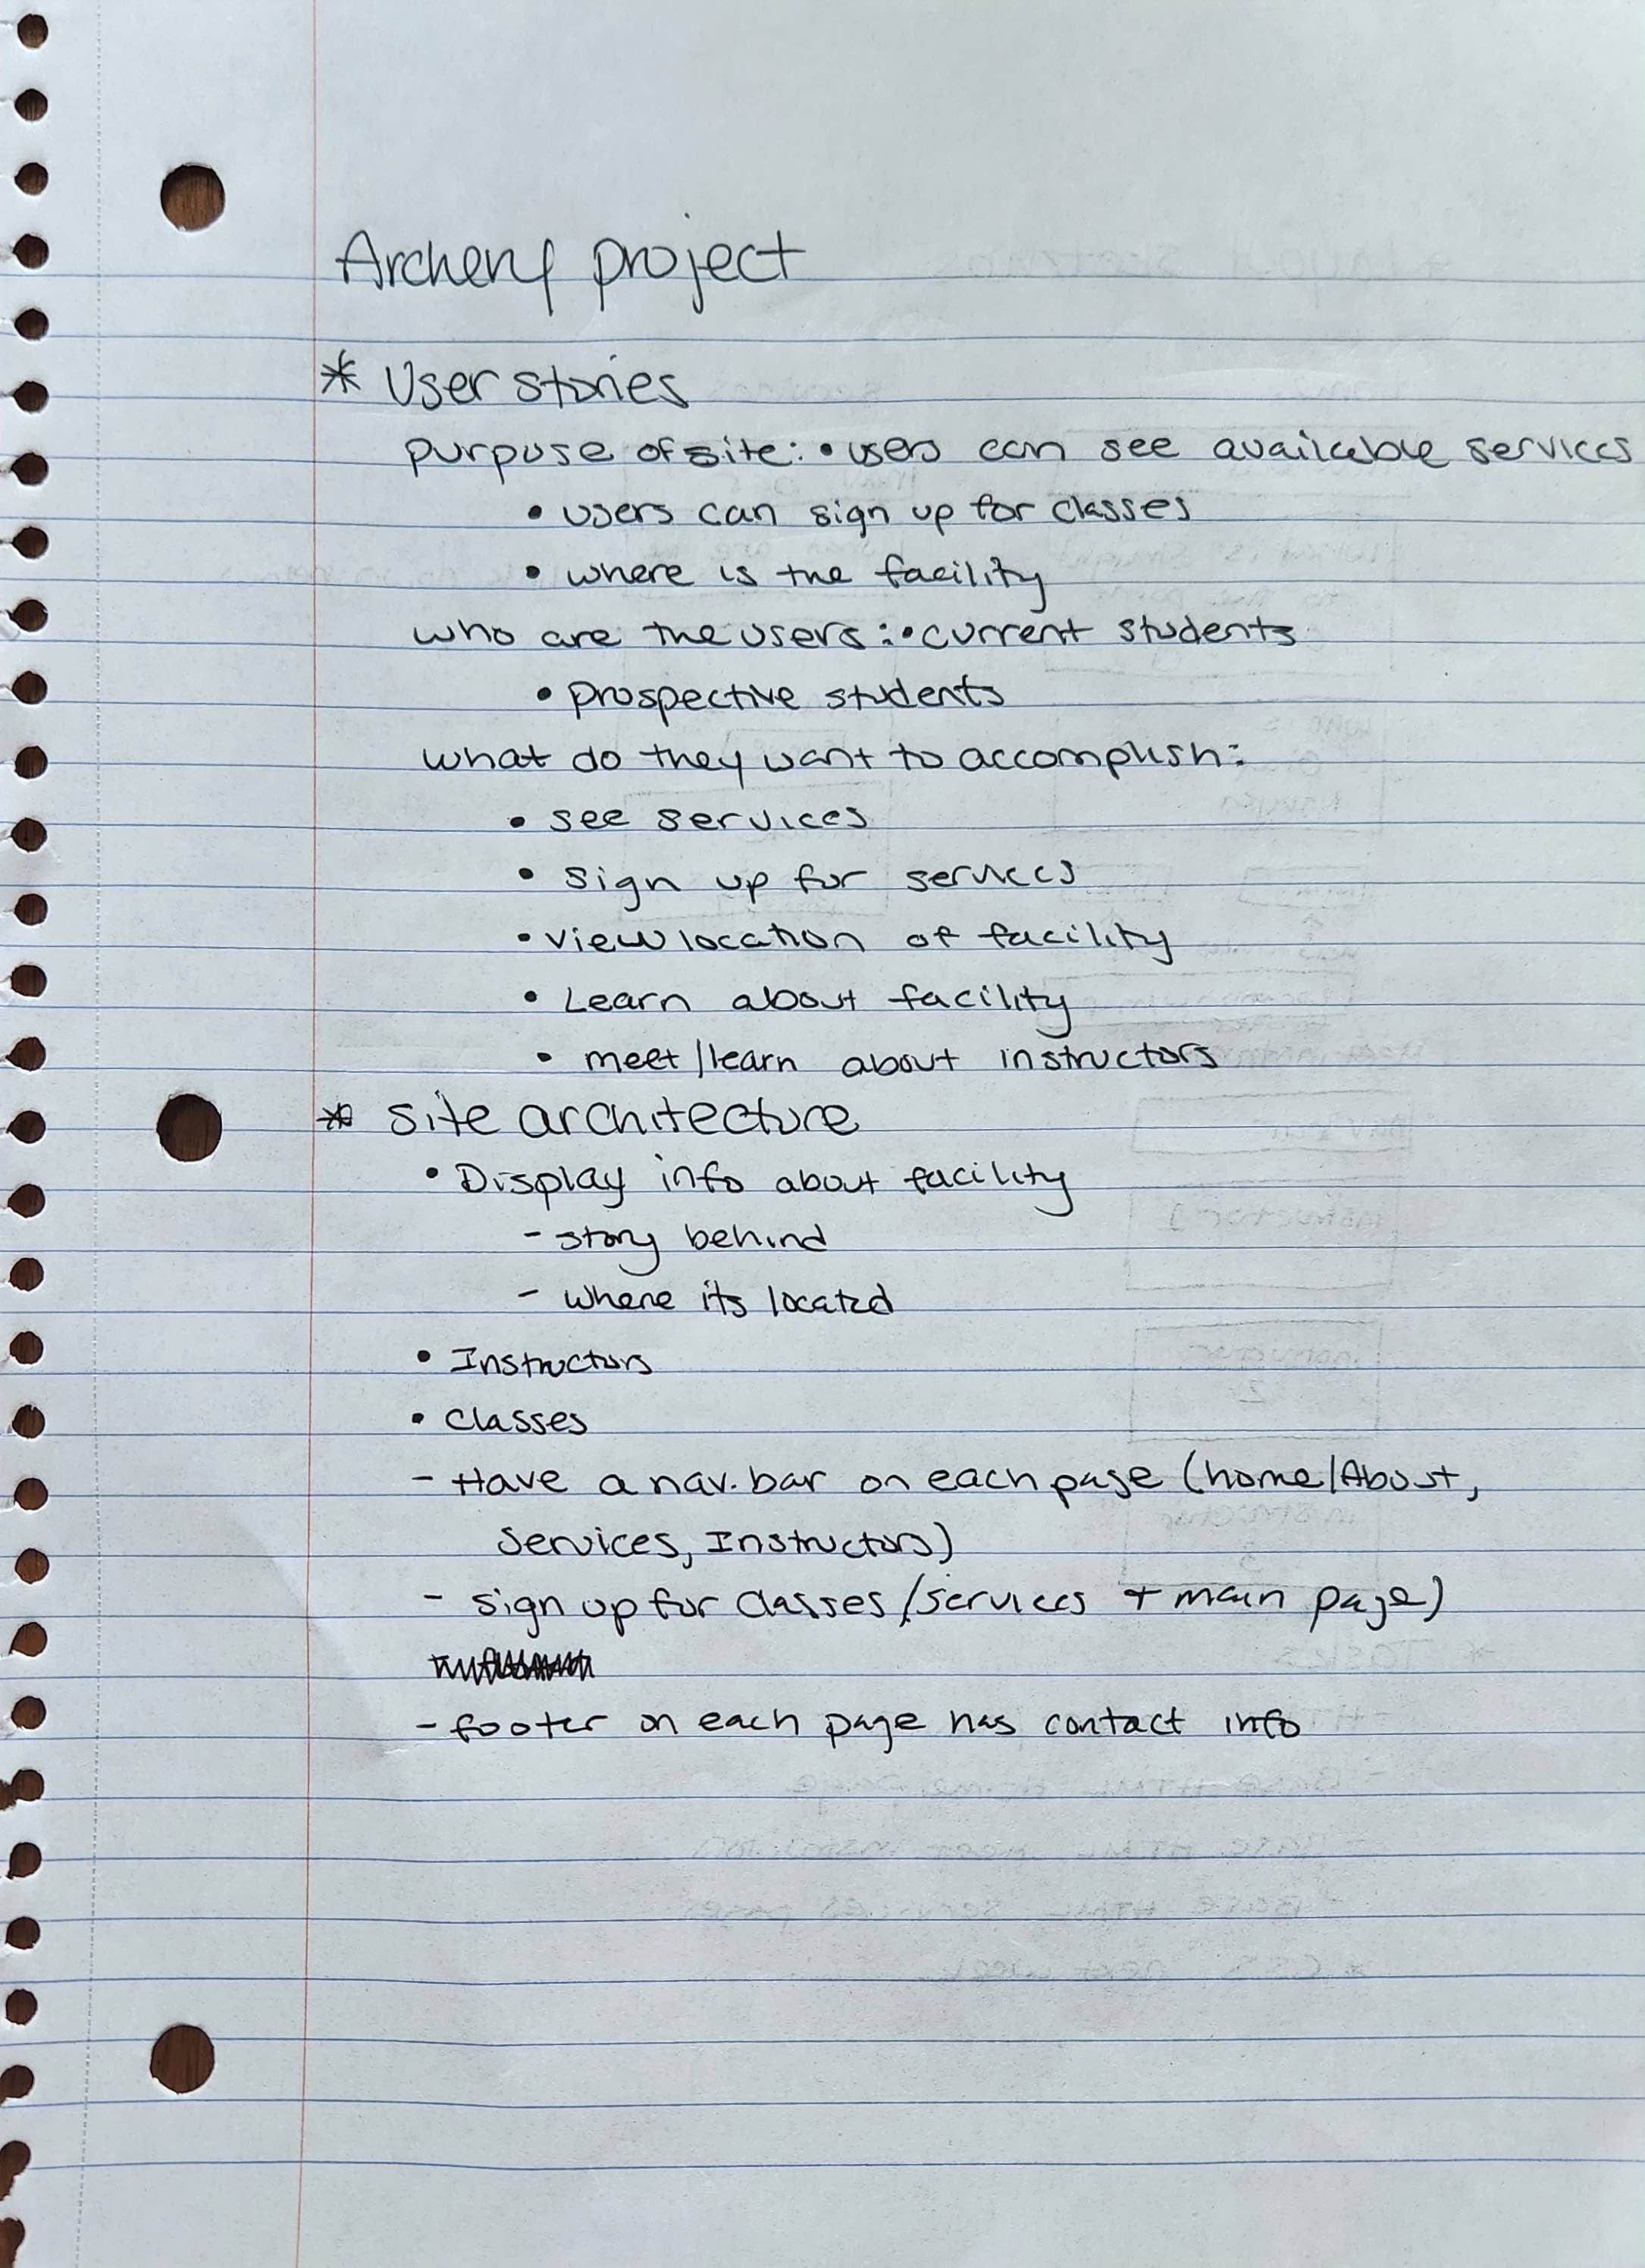 Archery project
* User stories
purpose of site: • users can see available services
• users can sign up for classes
• where is the facility
who are the users: • current students
• prospective students
what do they want to accomplish:
• see services
• sign up for services
• view location of facility
• Learn about facility
• meet/learn about instructors
* Site architecture
• Display info about facility
- story behind
- where its located
• Instructors
• Classes
- Have a nav. bar on each page (home/About,
Services, Instructors)
- sign up for classes (services + main page)
- footer on each page has contact info